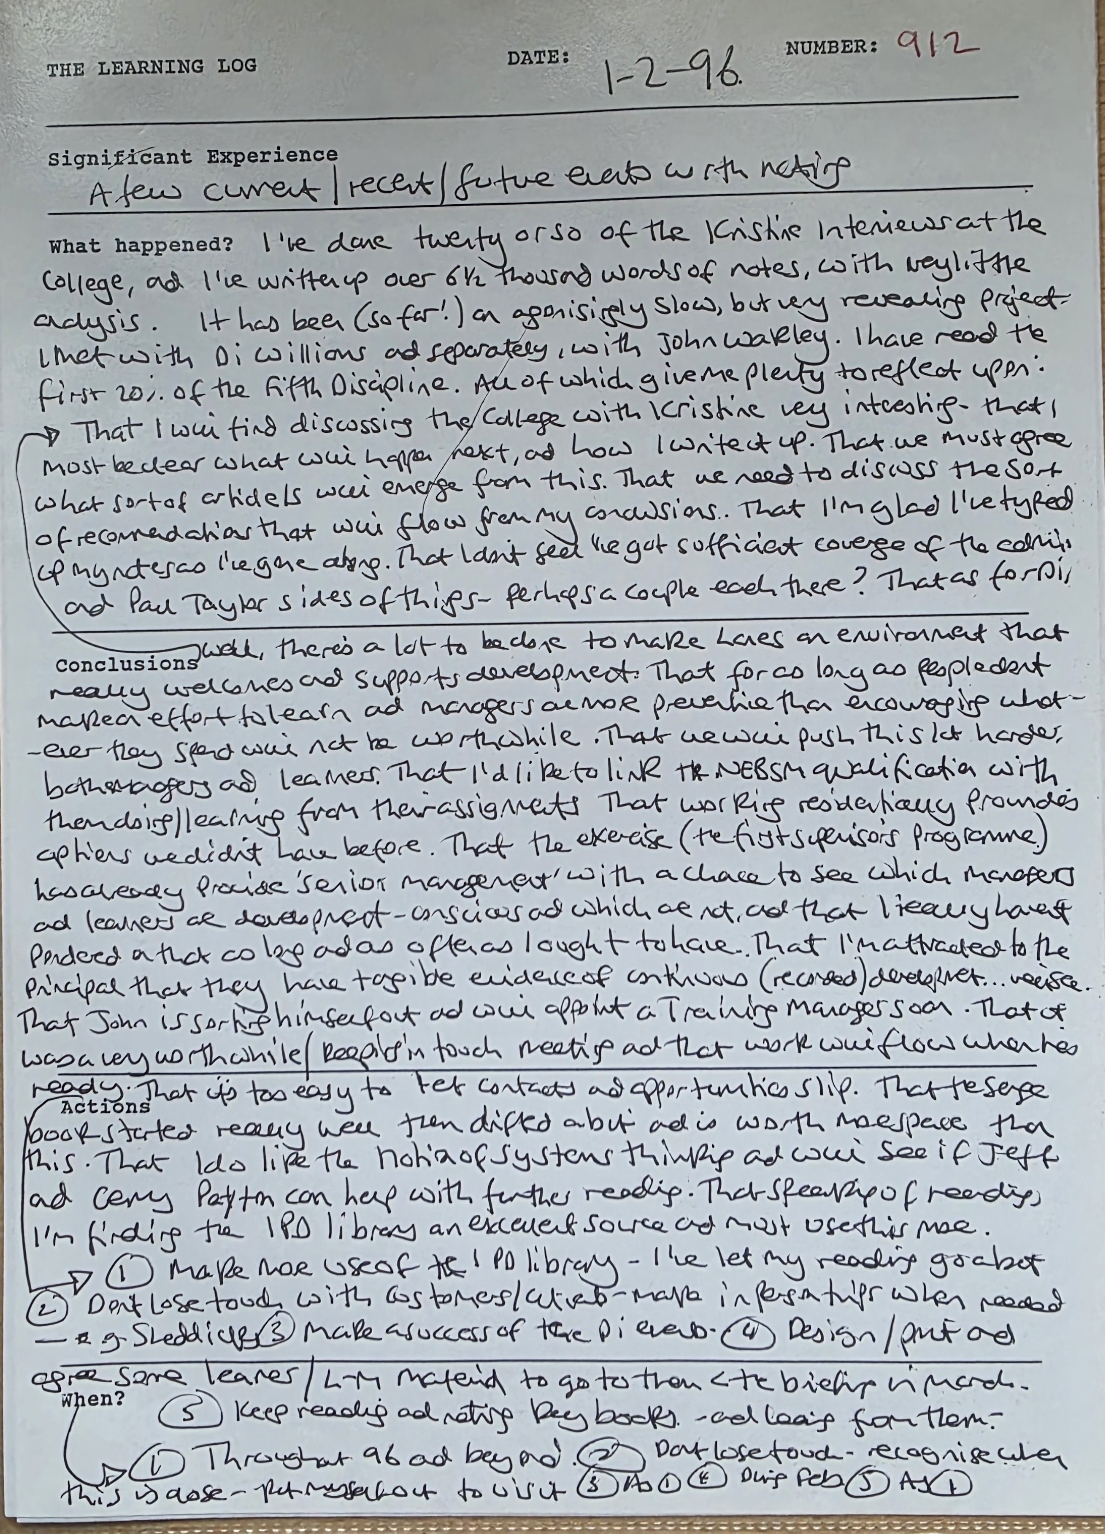 THE LEARNING LOG DATE: 1-2-96. NUMBER: 912
Significant Experience
A few current/recent/future events worth noting
What happened? I've done twenty or so of the Kristine interviews at the
College, and I've written up over 6½ thousand words of notes, with very little
analysis. It has been (so far!) an agonisingly slow, but very revealing project.
I met with Di Williams and separately, with John Wakley. I have read the
first 20% of the Fifth Discipline. All of which give me plenty to reflect upon:
That I will find discussing the College with Kristine very interesting - that I
must be clear what will happen next, and how I write it up. That we must agree
what sort of articles will emerge from this. That we need to discuss the sort
of recommendations that will flow from my conclusions. That I'm glad I've typed
up my notes as I've gone along. That I don't feel I've got sufficient coverage of the admin
and Paul Taylor sides of things - perhaps a couple each there? That as for Di,
well, there's a lot to be done to make an environment that
Conclusions
really welcomes and supports development. That for as long as people don't
make an effort to learn and managers are more preventive than encouraging what-
-ever they spend will not be worthwhile. That we will push this lot harder,
both managers and learners. That I'd like to link the NEBSM qualification with
them doing/learning from their assignments That working residentially provides
options we didn't have before. That the exercise (the first supervisors programme)
has already 'senior management' with a chance to see which managers
and learners are development-conscious and which are not, and that I really haven't
pondered on that as long and as often as I ought to have. That I'm attracted to the
principal that they have tangible evidence of continuous (recorded) development...
That John is sorting himself out and will appoint a Training Manager soon. That
was a very worthwhile/keeping in touch meeting and that work will flow when he's
ready. That it's too easy to let contacts and opportunities slip. That the Senge
Actions
book started really well then drifted a bit and is worth more space than
this. That I do like the notion of systems thinking and will see if Jeff
and Gerry Payton can help with further reading. That speaking of reading,
I'm finding the IPD library an excellent source and must use this more.
① Make more use of the IPD library - I've let my reading go a bit
② Don't lose touch with customers/clients - make in person trips when needed
- e.g. ③ Make a success of the Di events. ④ Design/print and
agree some learner/L-M material to go to them the briefing in March.
When?
⑤ Keep reading and noting key books - and learning from them.
① Throughout 96 and beyond. ② Don't lose touch - recognise when
this is close - put myself out to visit ③ As ① ④ During Feb ⑤ As ①